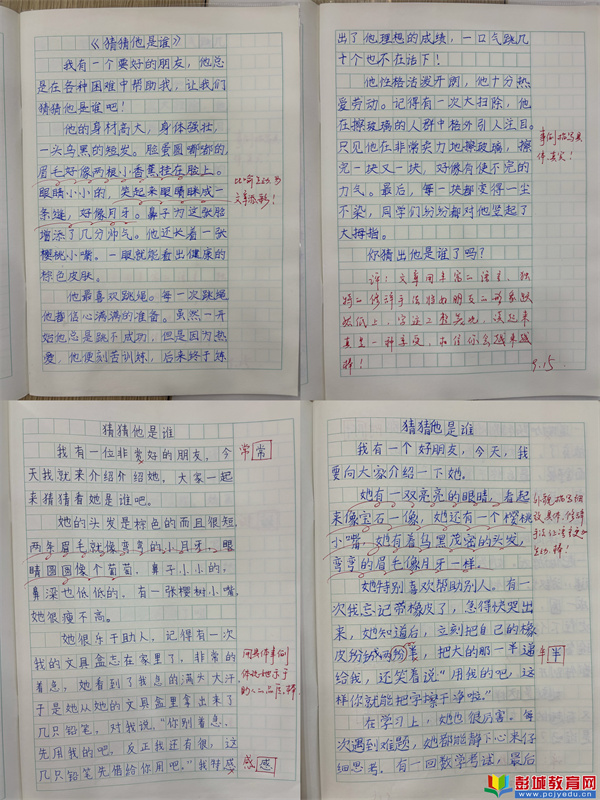 《猜猜他是谁》
我有一个要好的朋友，他总
是在各种困难中帮助我，让我们
猜猜他是谁吧！
他的身材高大，身体强壮，
一头乌黑的短发。脸蛋圆嘟嘟的，
眉毛好像两根小香蕉挂在脸上。
眼睛小小的，笑起来眼睛眯成一
条缝，好像月牙。鼻子为这张脸
增添了几分帅气。他还长着一张
樱桃小嘴。一眼就能看出健康的
棕色皮肤。
他最喜欢跳绳。每一次跳绳
他都信心满满的准备。虽然一开
始他总是跳不成功，但是因为热
爱，他便刻苦训练，后来终于练
出了他理想的成绩，一口气跳几
十个也不在话下！
他性格活泼开朗，他十分热
爱劳动。记得有一次大扫除，他
在擦玻璃的人群中格外引人注目。
只见他在非常卖力地擦玻璃，擦
完一块又一块，好像有使不完的
力气。最后，每一块都变得一尘
不染，同学们纷纷都对他竖起了
大拇指。
你猜出他是谁了吗？
9.15
猜猜他是谁
我有一位非常好的朋友，今
常 常
天我就来介绍介绍她，大家一起
来猜猜看她是谁吧。
她的头发是棕色的而且很短，
两条眉毛就像弯弯的小月牙，眼
睛圆圆像个葡萄，鼻子小小的，
鼻梁也低低的，有一张樱树小嘴，
她很瘦不高。
她很乐于助人，记得有一次
我的文具盒忘在家里了，非常的
着急，她看到了我急的满头大汗，
于是她从她的文具盒里拿出来了
几只铅笔，对我说，“你别着急，
先用我的吧，反正我还有很，这
几只铅笔先借给你用吧。”我特感
感 感
猜猜他是谁
我有一个好朋友，今天，我
要向大家介绍一下她。
她有一双亮亮的眼睛，看起
来像宝石一像，她还有一个樱桃
小嘴，她有着乌黑茂密的头发，
弯弯的眉毛像月牙一样。
她特别喜欢帮助别人。有一
次我忘记带橡皮了，急得快哭出
来，她知道后，立刻把自己的橡
皮分成两份，把大的那一半递
半
给我，还笑着说“用我的吧，这
样你就能把字擦干净啦。”
在学习上，她也很厉害。每
次遇到难题，她都能静下心来仔
细思考。有一回数学考试，最后
彭城教育网
www.pcjyedu.cn